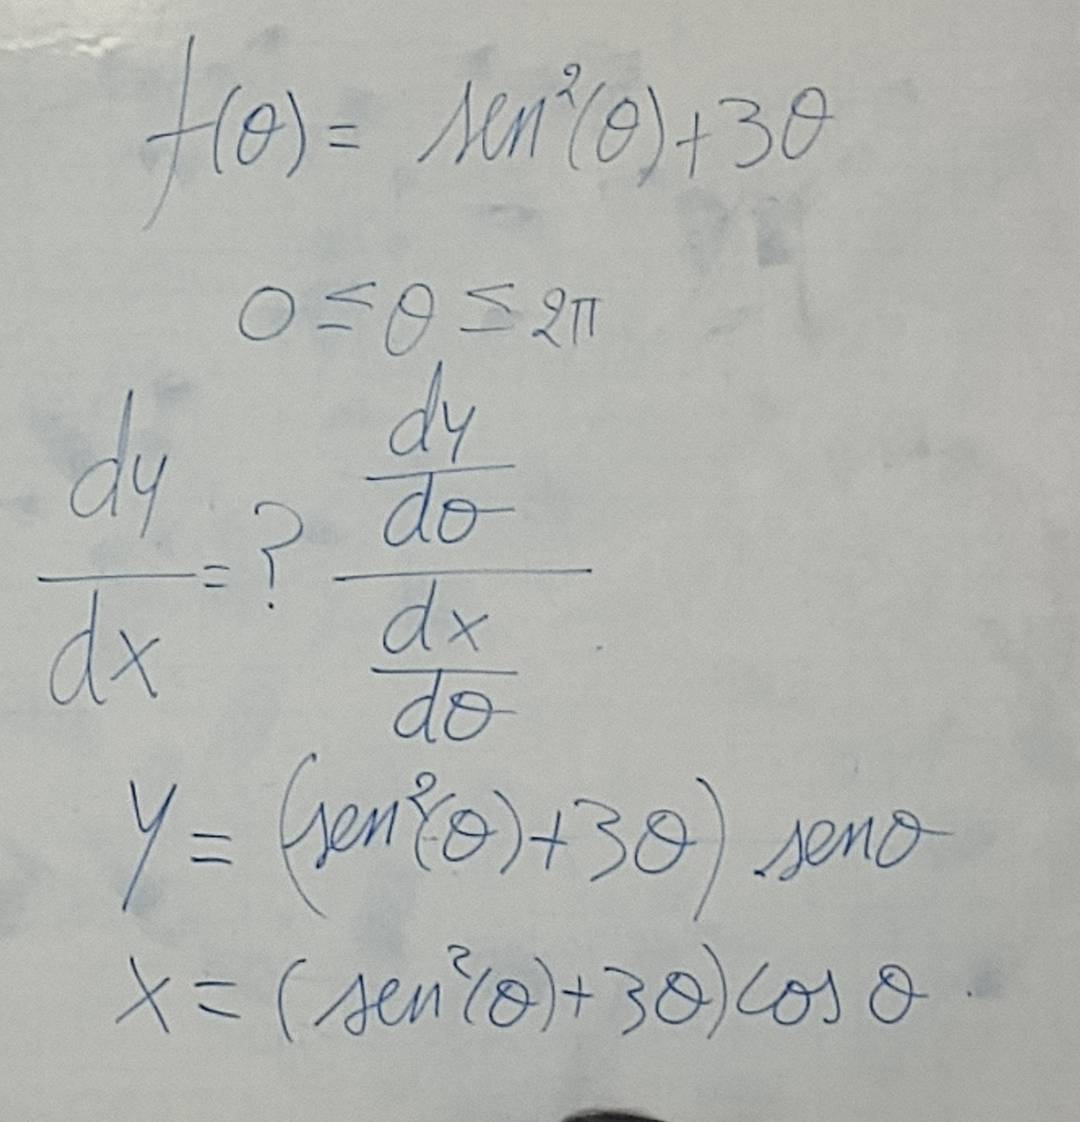 f(θ) = sen²(θ)+3θ
0 ≤ θ ≤ 2π
dy/dx = ? (dy/dθ)/(dx/dθ)
y = (sen²(θ)+3θ) senθ
x = (sen²(θ)+3θ) cos θ .